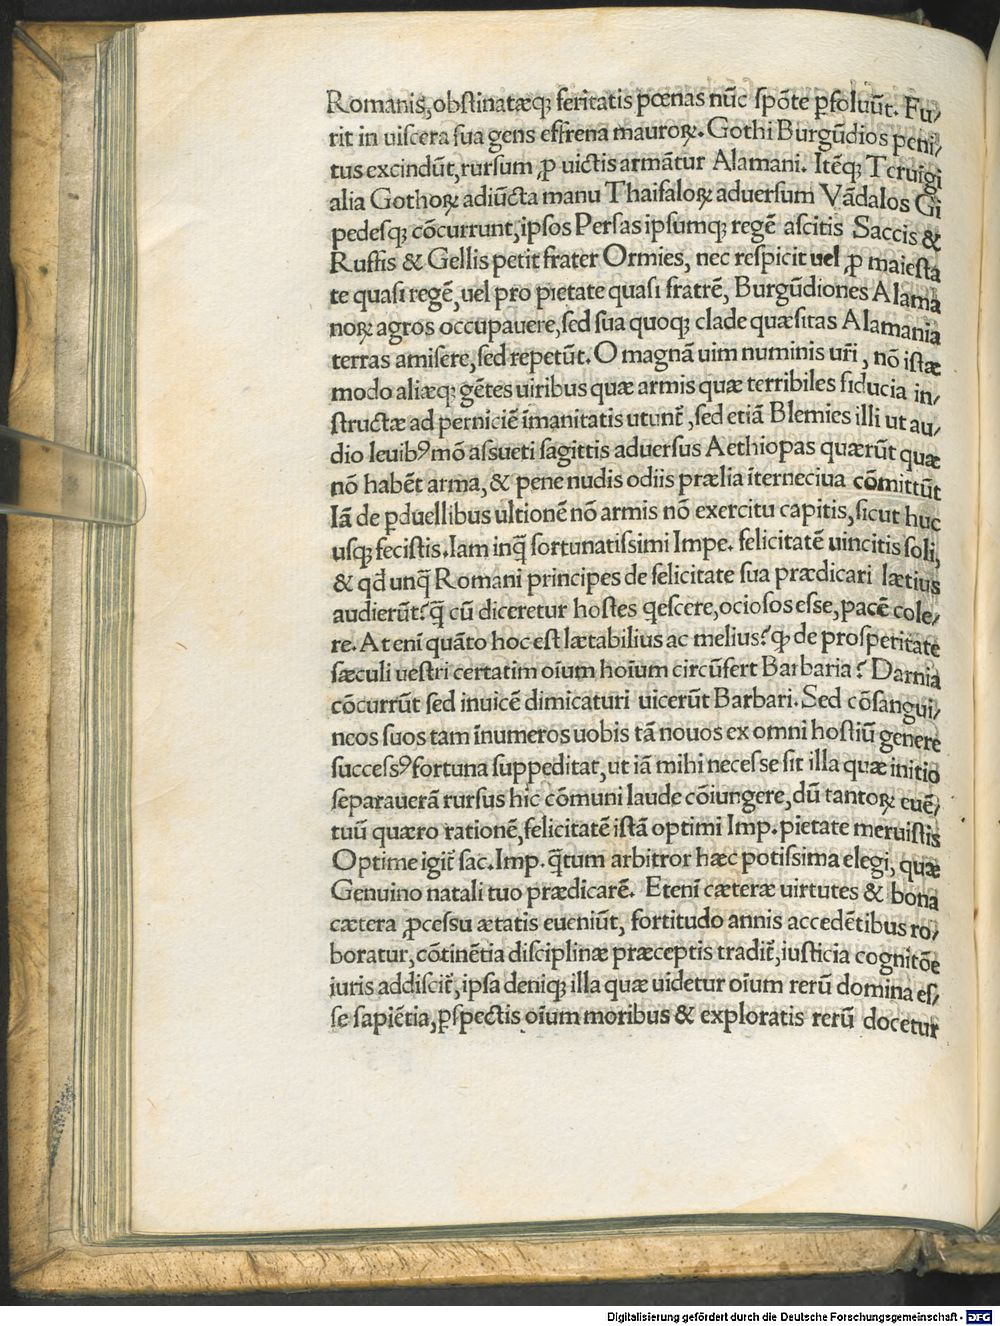 Romanis, obſtinatæq; feritatis pœnas nũc ſpõte ꝑſoluũt. Fu/
rit in uiſcera ſua gens effrena mauroꝝ. Gothi Burgũdios peni/
tus excindũt, rurſum ꝓ uictis armãtur Alamani. Itẽq; Teruigi
alia Gothoꝝ adiũcta manu Thaifaloꝝ aduerſum Vãdalos Gi
pedeſq; cõcurrunt, ipſos Perſas ipſumq; regẽ aſcitis Saccis &
Ruffis & Gellis petit frater Ormies, nec reſpicit uel ꝓ maieſta
te quaſi regẽ, uel pro pietate quaſi fratrẽ, Burgũdiones Alama
noꝝ agros occupauere, ſed ſua quoq; clade quæſitas Alamania
terras amiſere, ſed repetũt. O magnã uim numinis ur̃i, nõ iſtæ
modo aliæq; gẽtes uiribus quæ armis quæ terribiles fiducia in/
ſtructæ ad perniciẽ ĩmanitatis utunt̃, ſed etiã Blemies illi ut au/
dio leuibꝰ mõ aſſueti ſagittis aduerſus Aethiopas quærũt quæ
nõ habẽt arma, & pene nudis odiis prælia ĩterneciua cõmittũt
Iã de ꝑduellibus ultionẽ nõ armis nõ exercitu capitis, ſicut huc
uſq; feciſtis. Iam inq̃ fortunatiſſimi Impe. felicitatẽ uincitis ſoli,
& qd̃ unq̃ Romani principes de felicitate ſua prædicari lætius
audierũt? q̃ cũ diceretur hoſtes qeſcere, ocioſos eſſe, pacẽ cole/
re. At enĩ quãto hoc eſt lætabilius ac melius? q; de proſperitate
ſæculi ueſtri certatim oĩum hoĩum circũfert Barbaria? Darnia
cõcurrũt ſed inuicẽ dimicaturi uicerũt Barbari. Sed cõſangui/
neos ſuos tam ĩnumeros uobis tã nouos ex omni hoſtiũ genere
ſucceſſꝰ fortuna ſuppeditat, ut iã mihi neceſſe ſit illa quæ initio
ſeparauerã rurſus hic cõmuni laude cõiungere, dũ tantoꝝ euẽ/
tuũ quæro rationẽ, felicitatẽ iſtã optimi Imp. pietate meruiſtis
Optime igit̃ ſac. Imp. q̃tum arbitror hæc potiſſima elegi, quæ
Genuino natali tuo prædicarẽ. Etenĩ cæteræ uirtutes & bona
cætera ꝓceſſu ætatis eueniũt, fortitudo annis accedẽtibus ro/
boratur, cõtinẽtia diſciplinæ præceptis tradit̃, iuſticia cognitõe
iuris addiſcit̃, ipſa deniq; illa quæ uidetur oĩum rerũ domina eſ/
ſe ſapiẽtia, ꝑſpectis oĩum moribus & exploratis rerũ docetur
Digitalisierung gefördert durch die Deutsche Forschungsgemeinschaft - DFG